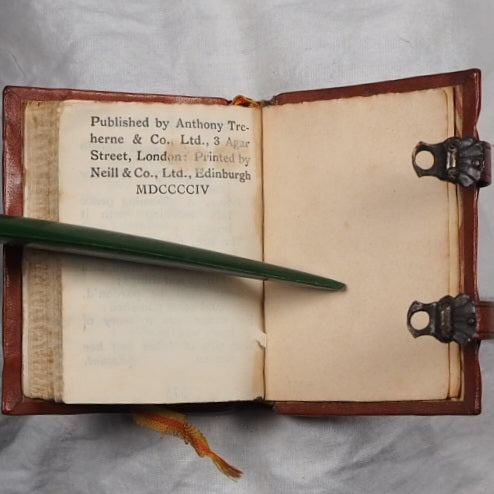 Published by Anthony Tre-
herne & Co., Ltd., 3 Agar
Street, London: Printed by
Neill & Co., Ltd., Edinburgh
MDCCCCIV